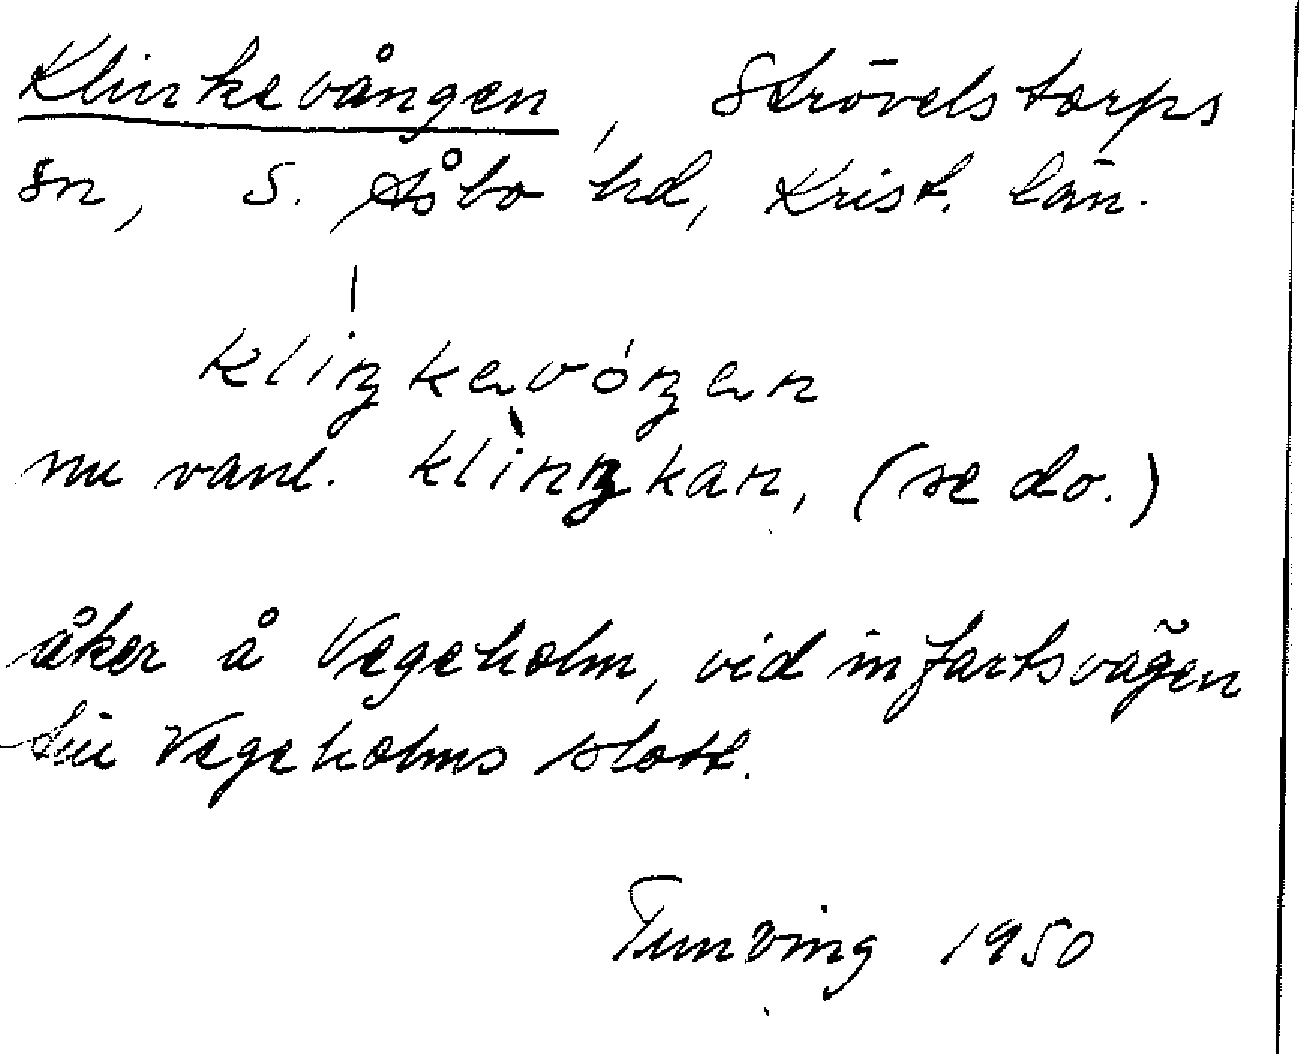 Klinkevången, Strövelstorps
sn, S. Åsbo hd, Krist. län.
kliŋkavóŋan
nu vanl. klìnŋkan, (se do.)
åker å Vegeholm, vid infartsvägen
till Vegeholms slott.
Tunving 1950